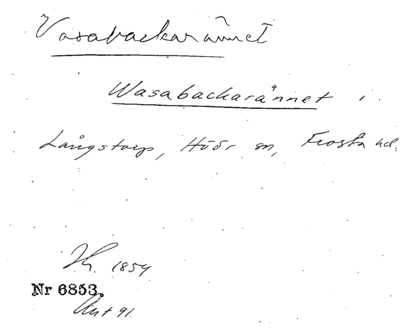 Vasabackarännet
Wasabackarännet i
Långstorp, Höör sn, Frosta hd.
1854
Nr 6853.
Ant 91.